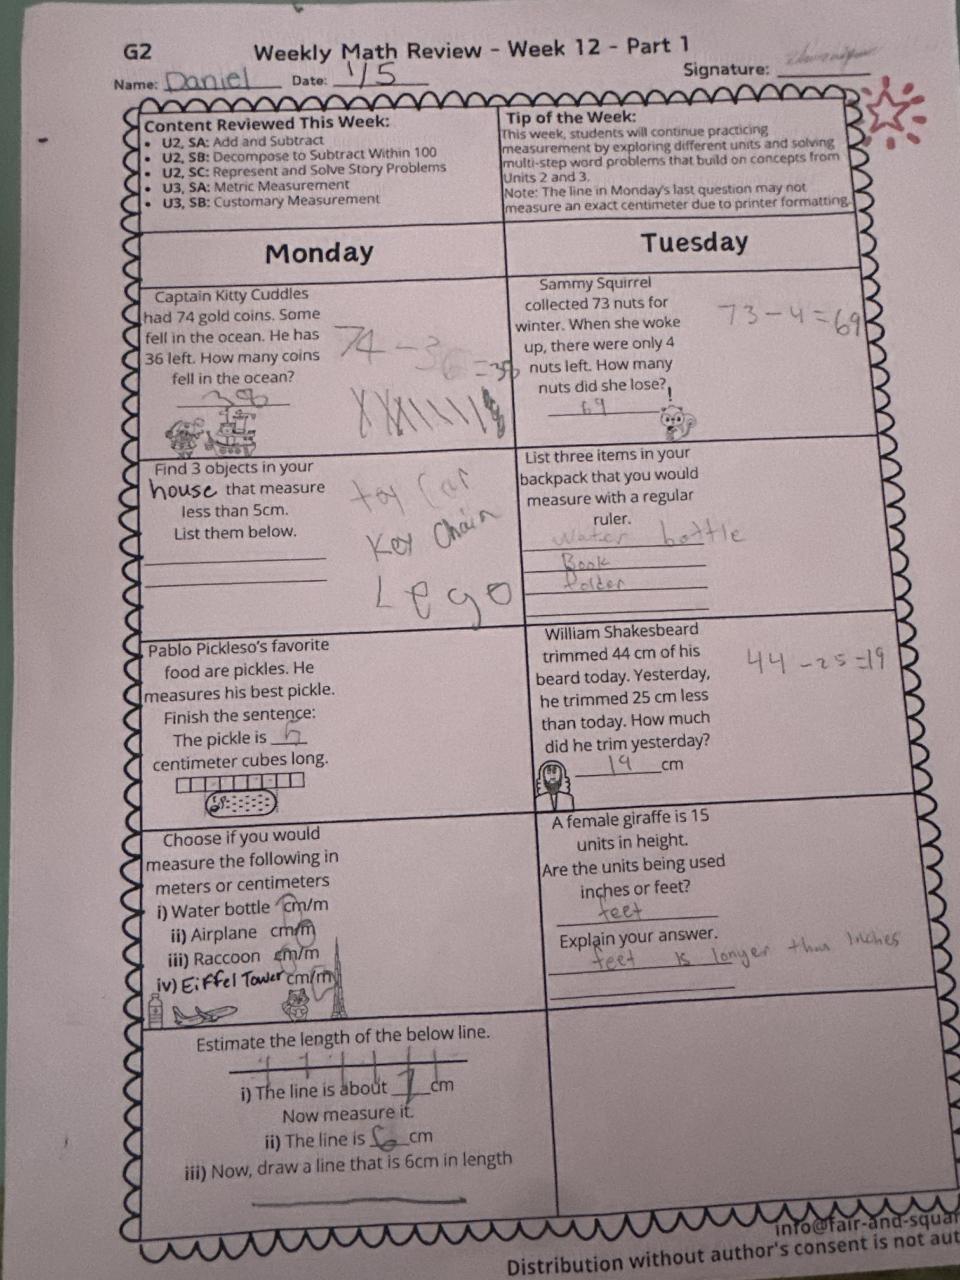 G2 Weekly Math Review - Week 12 - Part 1
Name: Daniel Date: 1/5 Signature:
Content Reviewed This Week:
• U2, SA: Add and Subtract
• U2, SB: Decompose to Subtract Within 100
• U2, SC: Represent and Solve Story Problems
• U3, SA: Metric Measurement
• U3, SB: Customary Measurement
Tip of the Week:
This week, students will continue practicing
measurement by exploring different units and solving
multi-step word problems that build on concepts from
Units 2 and 3.
Note: The line in Monday's last question may not
measure an exact centimeter due to printer formatting.
Monday
Captain Kitty Cuddles
had 74 gold coins. Some
fell in the ocean. He has
36 left. How many coins
fell in the ocean?
38
74 - 36 = 38
Find 3 objects in your
house that measure
less than 5cm.
List them below.
toy Car
Key Chain
Lego
Pablo Pickleso's favorite
food are pickles. He
measures his best pickle.
Finish the sentence:
The pickle is 5
centimeter cubes long.
Choose if you would
measure the following in
meters or centimeters
i) Water bottle cm/m
ii) Airplane cm/m
iii) Raccoon cm/m
iv) Eiffel Tower cm/m
Estimate the length of the below line.
i) The line is about 7 cm
Now measure it.
ii) The line is 6 cm
iii) Now, draw a line that is 6cm in length
Tuesday
Sammy Squirrel
collected 73 nuts for
winter. When she woke
up, there were only 4
nuts left. How many
nuts did she lose?
69
73 - 4 = 69
List three items in your
backpack that you would
measure with a regular
ruler.
Water bottle
Book
folder
William Shakesbeard
trimmed 44 cm of his
beard today. Yesterday,
he trimmed 25 cm less
than today. How much
did he trim yesterday?
19 cm
44 - 25 = 19
A female giraffe is 15
units in height.
Are the units being used
inches or feet?
feet
Explain your answer.
feet is longer than inches
info@fair-and-squar
Distribution without author's consent is not aut